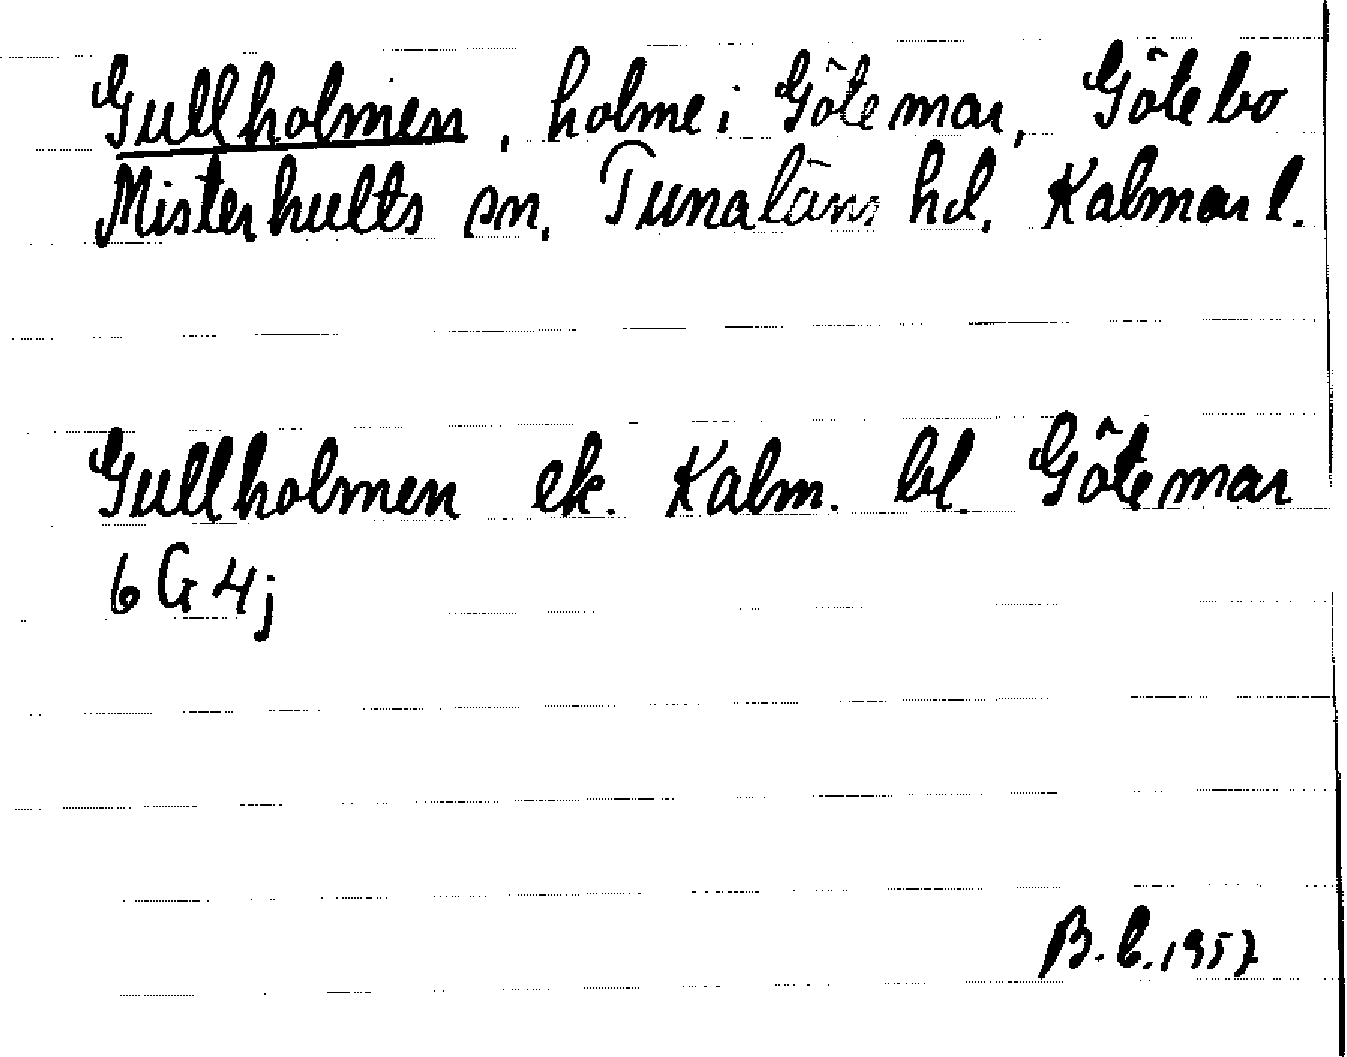 Gullholmen, holme i Götemar, Götebo
Misterhults sn, Tunaläns hd. Kalmar l.
Gullholmen ek. Kalm. bl. Götemar
6 G 4j
B.C. 1957